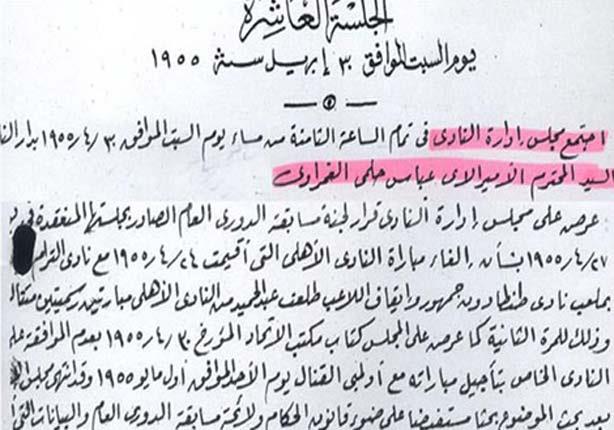 الجلسة العاشرة
يوم السبت الموافق ٣٠ إبريل سنة ١٩٥٥
اجتمع مجلس إدارة النادى فى تمام الساعة الثامنة من مساء يوم السبت الموافق ٣٠/٤/١٩٥٥ بدار
السيد المحترم الأميرالاى عباس حلمى الغمراوى
عرض على مجلس إدارة النادى قرار لجنة مسابقة الدورى العام الصادر بجلستها المنعقدة فى
٢٧/٤/١٩٥٥ بشأن إلغاء مباراة النادى الأهلى التى أقيمت ٢٤/٤/١٩٥٥ مع نادى الترام
بملعب نادى طنطا دون جمهور وإيقاف اللاعب طلعت عبد الحميد من النادى الأهلى مبارتين رسميتين
وذلك للمرة الثانية كما عرض على المجلس كتاب مكتب الاتحاد المؤرخ ٣٠/٤/١٩٥٥ بعدم الموافقة على
النادى الخاص بتأجيل مباراته مع أولمبى القنال يوم الأحد الموافق أول مايو ١٩٥٥ وقد انتهى مجلس
بعد بحث الموضوع بحثا مستفيضا على ضوء قانون الحكام ولائحة مسابقة الدورى العام والبيانات التى